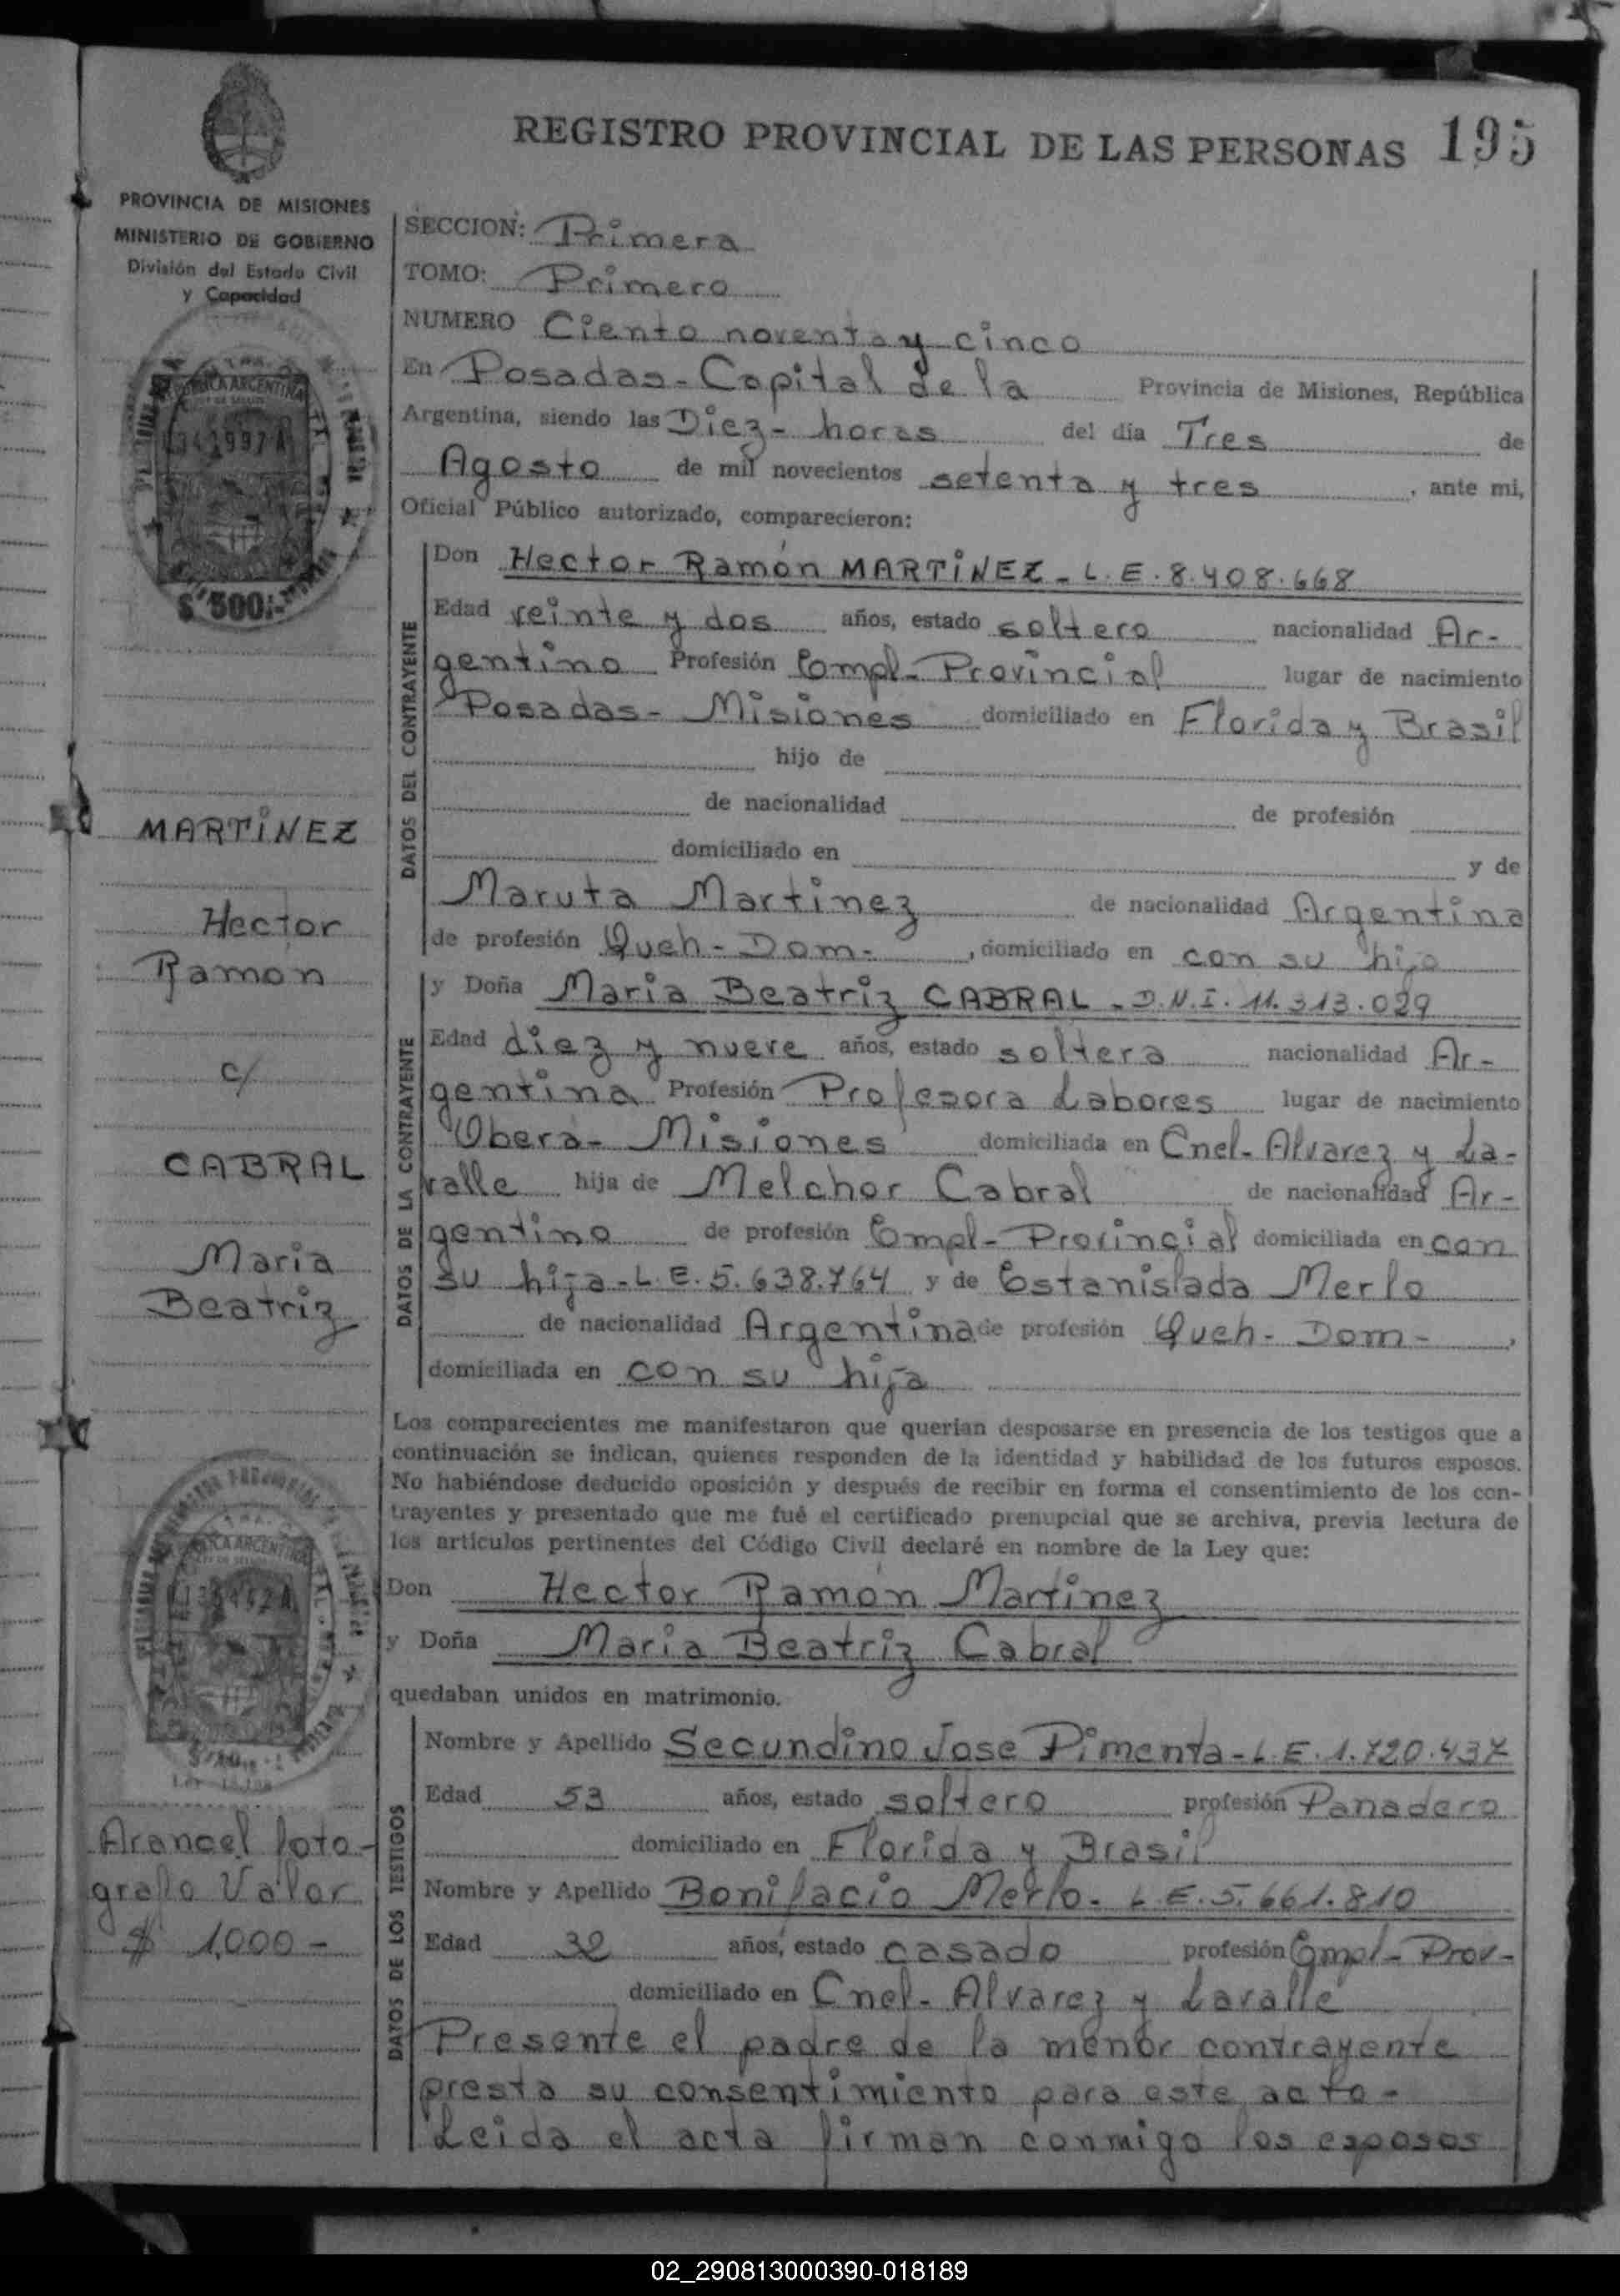 REGISTRO PROVINCIAL DE LAS PERSONAS 195
PROVINCIA DE MISIONES
MINISTERIO DE GOBIERNO
División del Estado Civil
y Capacidad
REPUBLICA ARGENTINA
$ 500.-
MARTÍNEZ
Hector
Ramón
c/
CABRAL
Maria
Beatriz
Arancel foto-
grafo Valor
$ 1,000 -
SECCION: Primera
TOMO: Primero
NUMERO Ciento noventa y cinco
En Posadas - Capital de la Provincia de Misiones, República
Argentina, siendo las Diez - horas del día Tres de
Agosto de mil novecientos setenta y tres, ante mi,
Oficial Público autorizado, comparecieron:
DATOS DEL CONTRAYENTE
Don Hector Ramón MARTÍNEZ - L.E. 8.408.668
Edad veinte y dos años, estado soltero nacionalidad Ar-
gentino Profesión Empl - Provincial lugar de nacimiento
Posadas - Misiones domiciliado en Florida y Brasil
hijo de
de nacionalidad de profesión
domiciliado en y de
Maruta Martinez de nacionalidad Argentina
de profesión Queh - Dom - , domiciliado en con su hijo
DATOS DE LA CONTRAYENTE
y Doña Maria Beatriz CABRAL - D.N.I. 11.313.029
Edad diez y nueve años, estado soltera nacionalidad Ar-
gentina Profesión Profesora Labores lugar de nacimiento
Oberá - Misiones domiciliada en Cnel - Alvarez y La-
valle hija de Melchor Cabral de nacionalidad Ar-
gentino de profesión Empl - Provincial domiciliada en con
su hija - L.E. 5.638.764 y de Estanislada Merlo
de nacionalidad Argentina de profesión Queh - Dom - ,
domiciliada en con su hija
Los comparecientes me manifestaron que querían desposarse en presencia de los testigos que a
continuación se indican, quienes responden de la identidad y habilidad de los futuros esposos.
No habiéndose deducido oposición y después de recibir en forma el consentimiento de los con-
trayentes y presentado que me fué el certificado prenupcial que se archiva, previa lectura de
los artículos pertinentes del Código Civil declaré en nombre de la Ley que:
Don Hector Ramón Martinez
y Doña Maria Beatriz Cabral
quedaban unidos en matrimonio.
DATOS DE LOS TESTIGOS
Nombre y Apellido Secundino Jose Pimenta - L.E. 1.720.437
Edad 53 años, estado soltero profesión Panadero
domiciliado en Florida y Brasil
Nombre y Apellido Bonifacio Merlo - L.E. 5.661.810
Edad 32 años, estado casado profesión Empl - Prov -
domiciliado en Cnel - Alvarez y Lavalle
Presente el padre de la menor contrayente
presta su consentimiento para este acto -
Leida el acta firman conmigo los esposos
02_290813000390-018189